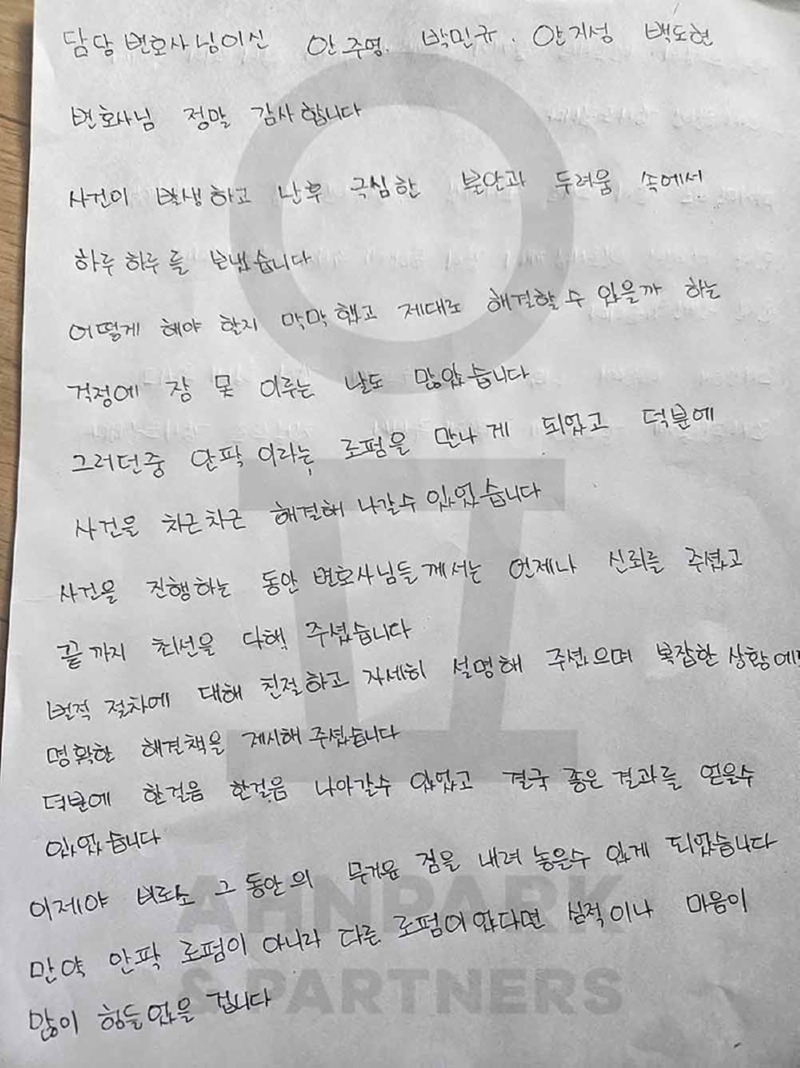 담당 변호사님이신 안주영. 박민규. 안지성 백도현
변호사님 정말 감사합니다
사건이 발생하고 난후 극심한 불안과 두려움 속에서
하루하루를 보냈습니다
어떻게 해야 할지 막막했고 제대로 해결할수 있을까 하는
걱정에 잠 못 이루는 날도 많았습니다
그러던중 안팍이라는 로펌을 만나게 되었고 덕분에
사건을 차근차근 해결해 나갈수 있었습니다
사건을 진행하는 동안 변호사님들께서는 언제나 신뢰를 주셨고
끝까지 최선을 다해 주셨습니다
법적 절차에 대해 친절하고 자세히 설명해 주셨으며 복잡한 상황에
명확한 해결책을 제시해 주셨습니다
덕분에 한걸음 한걸음 나아갈수 있었고 결국 좋은 결과를 얻을수
있었습니다
이제야 비로소 그동안의 무거운 짐을 내려 놓을수 있게 되었습니다
만약 안팍 로펌이 아니라 다른 로펌이었다면 심적이나 마음이
많이 힘들었을 겁니다
AHNPARK
& PARTNERS